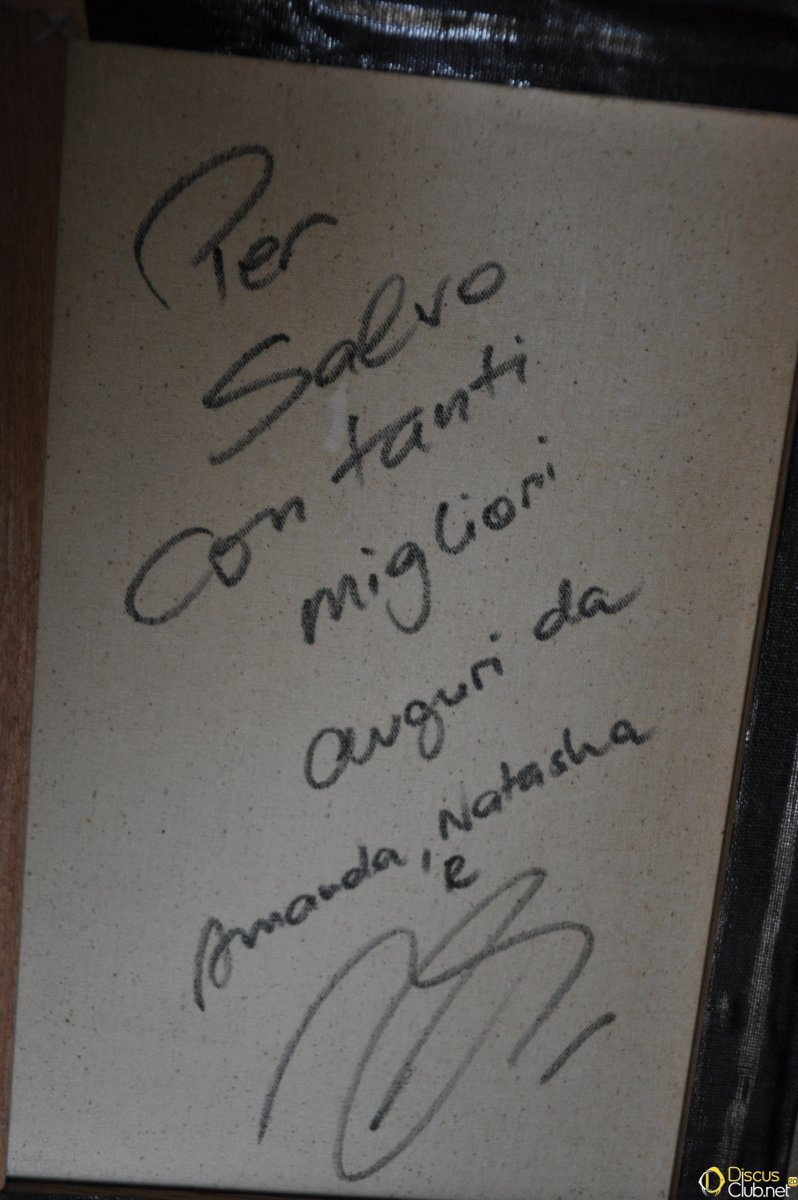 Per
Salvo
Con tanti
migliori
auguri da
Amanda, Natasha
e
Discus
Club.net